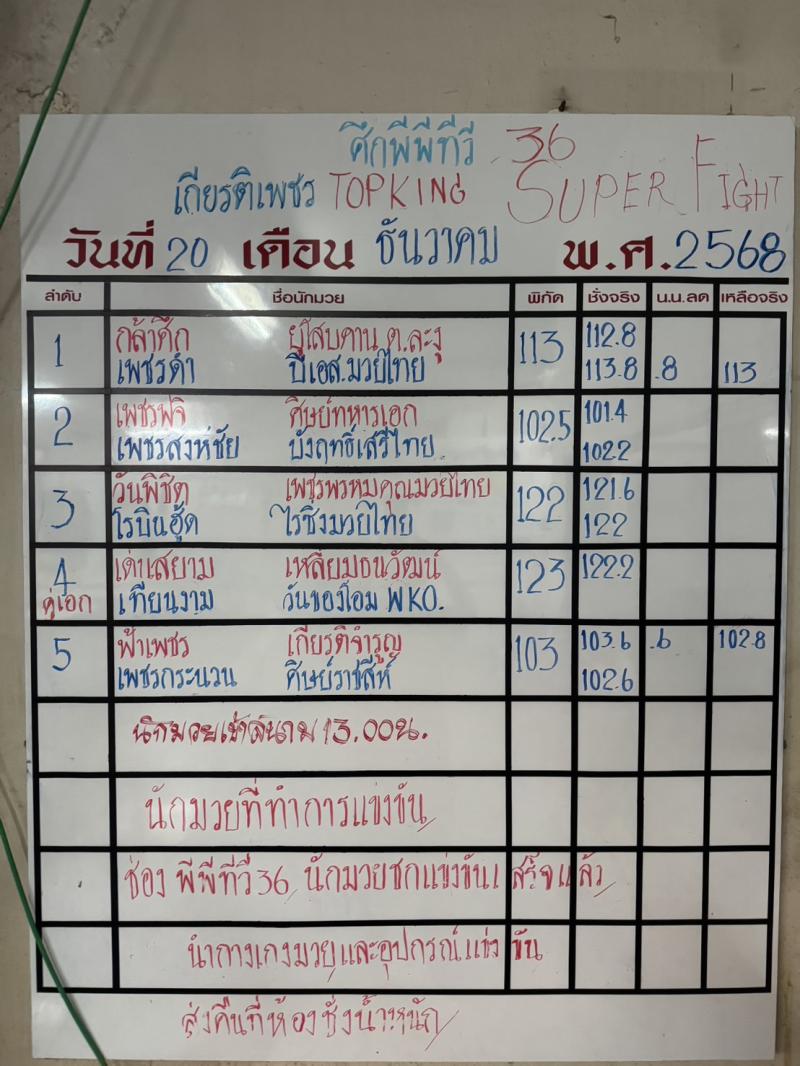 ศึกพีพีทีวี 36
เกียรติเพชร TOPKING SUPER FIGHT
วันที่ 20 เดือน ธันวาคม พ.ศ. 2568
ลำดับ ชื่อนักมวย พิกัด ชั่งจริง น.น.ลด เหลือจริง
1 กล้าศึก ยูโสบคาน ต.ละงู 113 112.8
เพชรดำ บีเอส.มวยไทย 113.8 .8 113
2 เพชรฟูจิ ศิษย์ทหารเอก 102.5 101.4
เพชรสงห์ชัย บังฤทธิ์เสรีไทย 102.2
3 วันพิชิต เพชรพรหมคุณมวยไทย 122 121.6
โรบินฮู้ด ไรซิ่งมวยไทย 122
4 เด่นสยาม เหลี่ยมธนวัฒน์ 123 122.2
คู่เอก เทียนงาม วันของโอม WKO.
5 ฟ้าเพชร เกียรติจำรูญ 103 103.6 .6 102.8
เพชรกระนวน ศิษย์ราชสีห์ 102.6
นักมวยเข้าสนาม 13.00น.
นักมวยที่ทำการแข่งขัน
ช่อง พีพีทีวี 36 นักมวยชกแข่งขันเสร็จแล้ว
นำกางเกงมวยและอุปกรณ์แข่งขัน
ส่งคืนที่ห้องชั่งน้ำหนัก